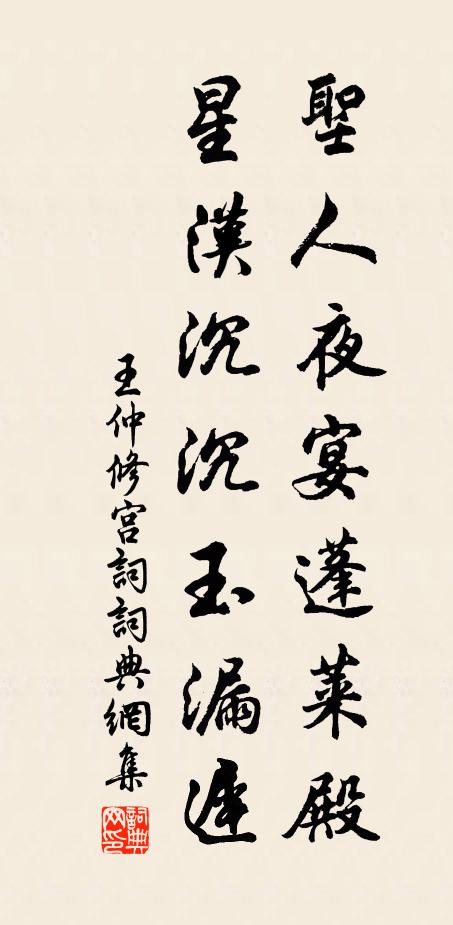 聖人夜宴蓬萊殿
星漢沉沉玉漏遲
王仲修宮詞詞典網集
詞典網印